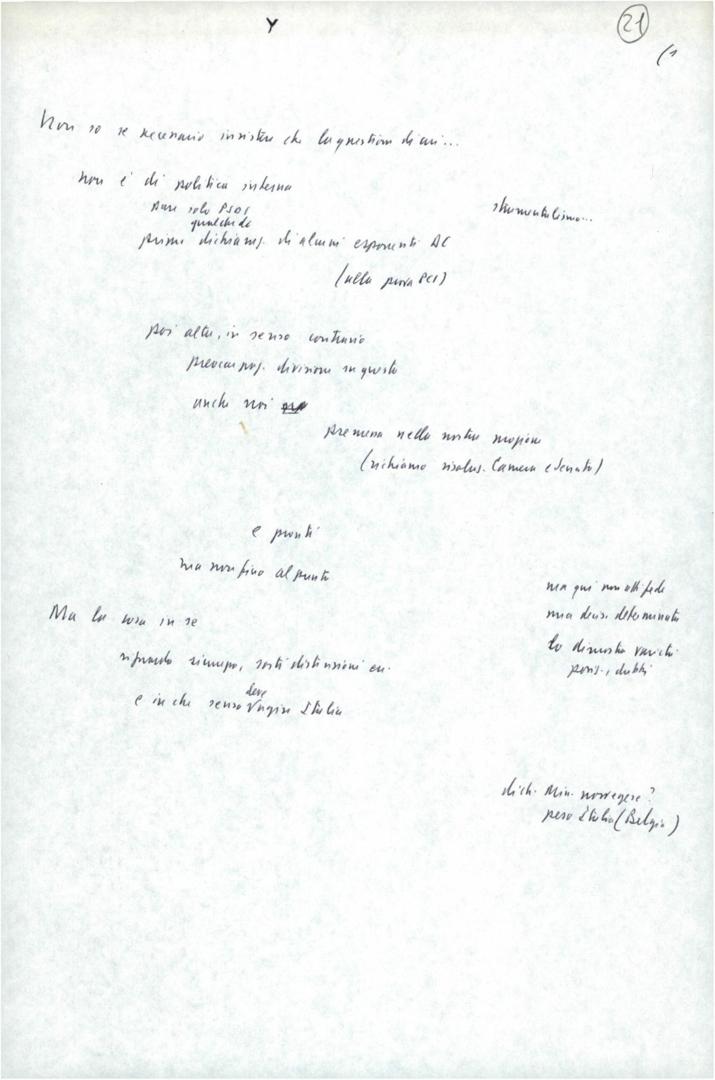 Y
21
(1
Non so se necessario insistere che la question di cui...
non è di politica interna
strumentalismo...
pure solo PSOC
qualche dc
prime dichiaraz. di alcuni esponenti DC
(alla prova PCI)
poi altre, in senso contrario
preoccupaz. divisione su questo
anche noi
premessa nella nostra mozione
(richiamo risoluz. Camera e Senato)
e pronti
ma non fino al punto
ma qui non
Ma la cosa in se
mia decis. determinata
lo dimostra
riguardo disarmo, distensione
poss., dubbi
deve
e in che senso agire Italia
dich. Min. norvegese?
peso Italia (Belgio)